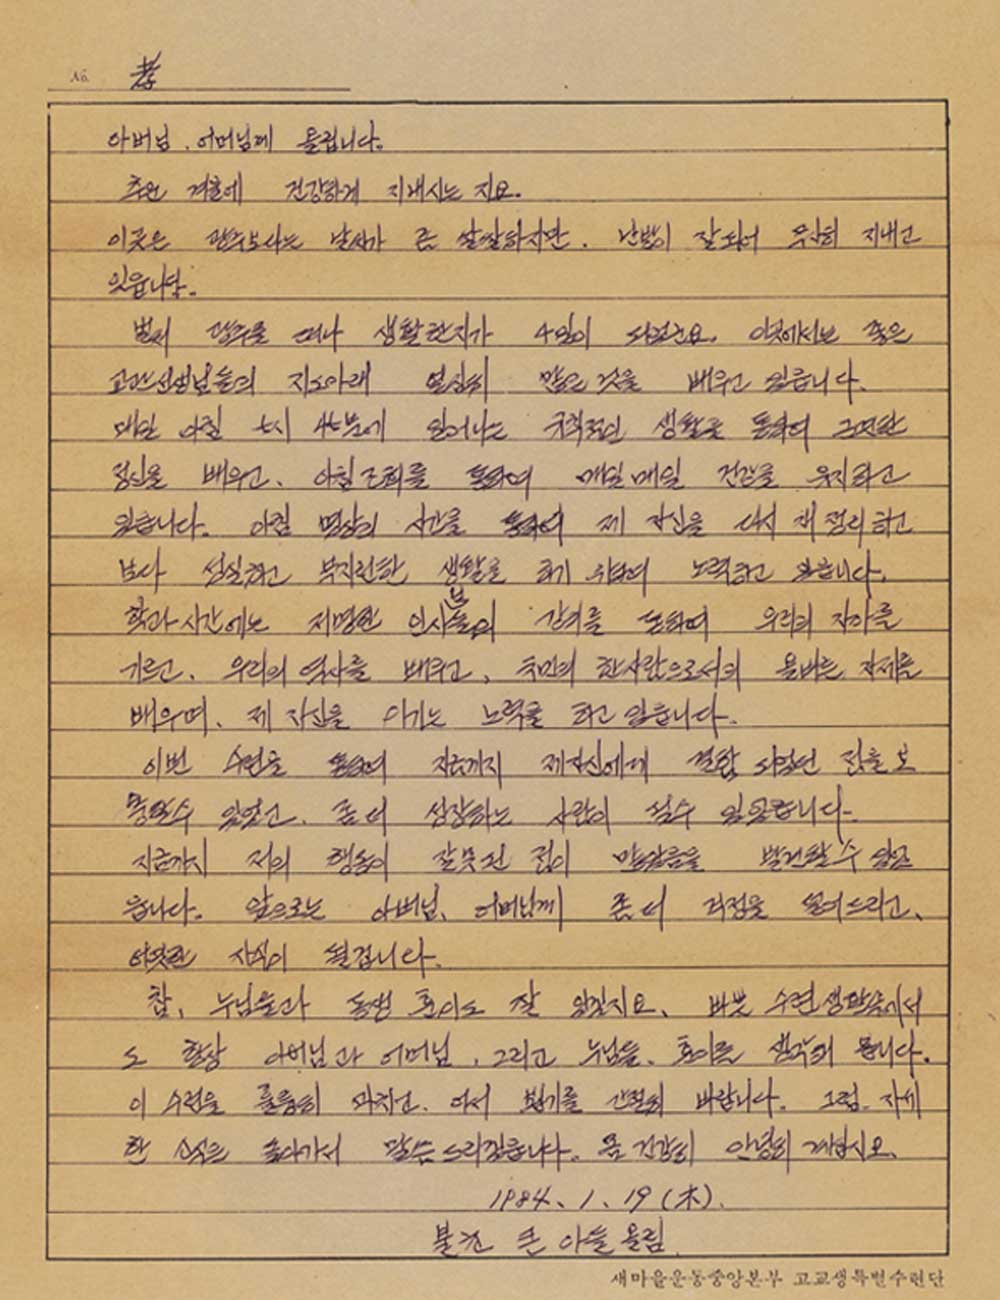 No. 孝
아버님, 어머님께 올립니다.
추운 겨울에 건강하게 지내시는 지요.
이곳은 광주보다는 날씨가 좀 쌀쌀하지만, 난방이 잘되어 무사히 지내고
있읍니다.
벌써 광주를 떠나 생활한지가 4일이 되었군요. 이곳에서는 좋은
교관선생님들의 지도아래 열심히 많은 것을 배우고 있읍니다.
매일 아침 5시 45분에 일어나는 규칙적인 생활을 통하여 근면한
정신을 배우고, 아침조회를 통하여 매일매일 건강을 유지하고
있읍니다. 아침 명상의 시간을 통하여 제 자신을 다시 재정리하고
보다 성실하고 부지런한 생활을 하기 위하여 노력하고 있읍니다.
학과시간에는 저명한 인사분들의 강의를 통하여 우리의 자아를
기르고, 우리의 역사를 배우고, 국민의 한사람으로서의 올바른 자세를
배우며, 제 자신을 이기는 노력을 하고 있읍니다.
이번 수련을 통하여 지금까지 제자신에게 결핍 되었던 점을 보
충할수 있었고, 좀더 성장하는 사람이 될수 있었읍니다.
지금까지 저의 행동이 잘못된 점이 많았음을 발견할 수 있었
읍니다. 앞으로는 아버님, 어머님께 좀더 걱정을 덜어드리고,
어엿한 자식이 될겁니다.
참, 누님들과 동생 훈이도 잘 있겠지요. 바쁜 수련생활속에서
도 항상 아버님과 어머님, 그리고 누님들, 훈이를 생각하 봅니다.
이 수련을 훌륭히 마치고, 어서 뵙기를 간절히 바랍니다. 그럼, 자세
한 소식은 돌아가서 말씀드리겠읍니다. 몸 건강히 안녕히 계십시오.
1984. 1. 19 (木).
불효 큰 아들 올림.
새마을운동중앙본부 고교생특별수련단